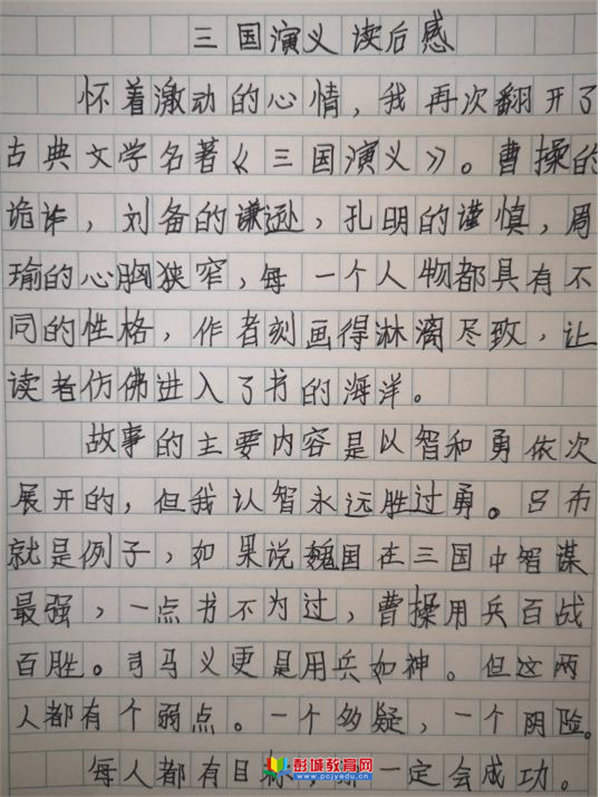 三国演义读后感
怀着激动的心情，我再次翻开了
古典文学名著《三国演义》。曹操的
诡诈，刘备的谦逊，孔明的谨慎，周
瑜的心胸狭窄，每一个人物都具有不
同的性格，作者刻画得淋漓尽致，让
读者仿佛进入了书的海洋。
故事的主要内容是以智和勇依次
展开的，但我认智永远胜过勇。吕布
就是例子，如果说魏国在三国中智谋
最强，一点书不为过，曹操用兵百战
百胜。司马义更是用兵如神。但这两
人都有个弱点。一个多疑，一个阴险。
每人都有目标，一定会成功。
彭城教育网
www.pcjyedu.cn